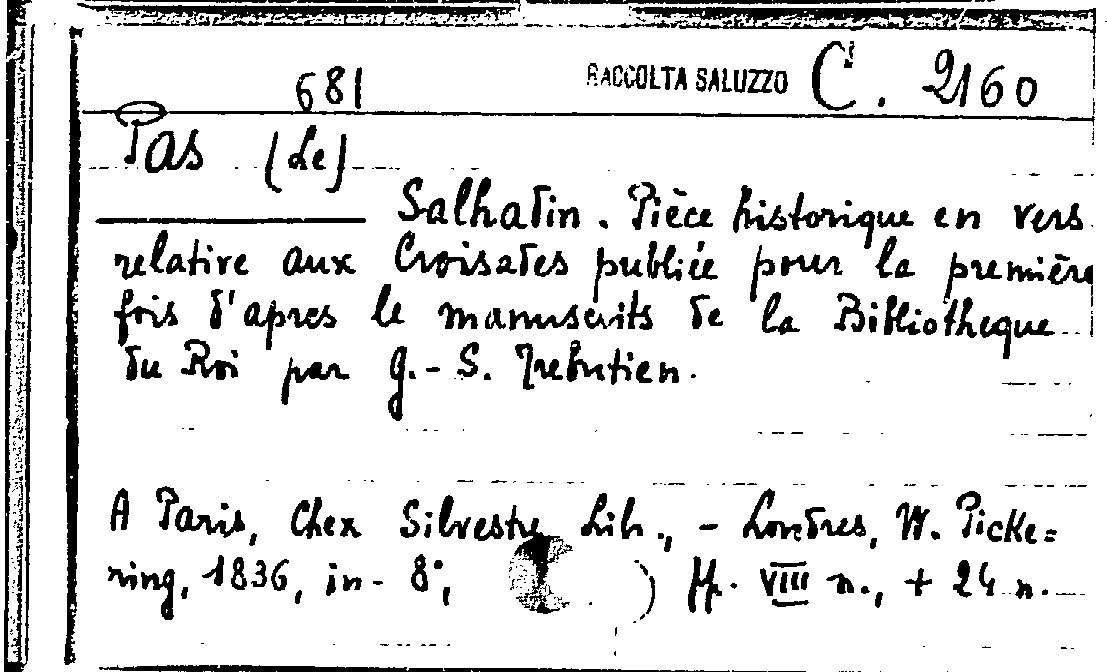 681 RACCOLTA SALUZZO C. 2160
Pas (Le)
Salhadin. Pièce historique en vers
relative aux Croisades publiée pour la première
fois d'apres le manuscrits de la Bibliotheque
du Roi par G.-S. Trebutien.
A Paris, Chez Silvestre Lib., - Londres, W. Picke=
ring, 1836, in-8°, ) ff. VIII n., + 24 n.